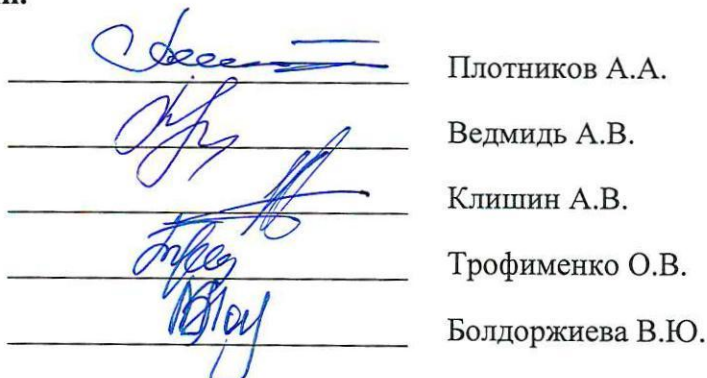 Плотников А.А.
Ведмидь А.В.
Клишин А.В.
Трофименко О.В.
Болдоржиева В.Ю.